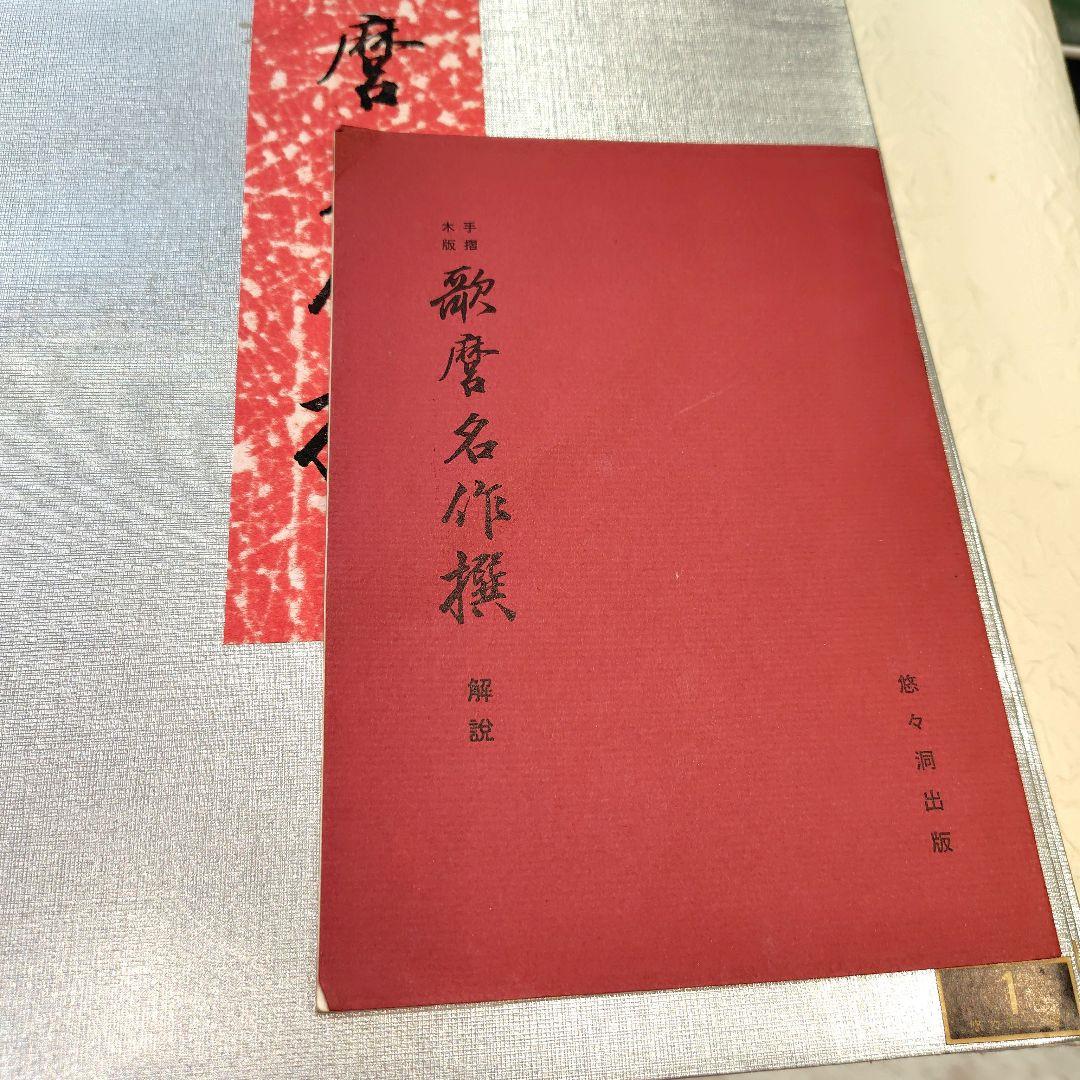 手摺
木版
歌麿名作撰
解説
悠々洞出版
麿
1